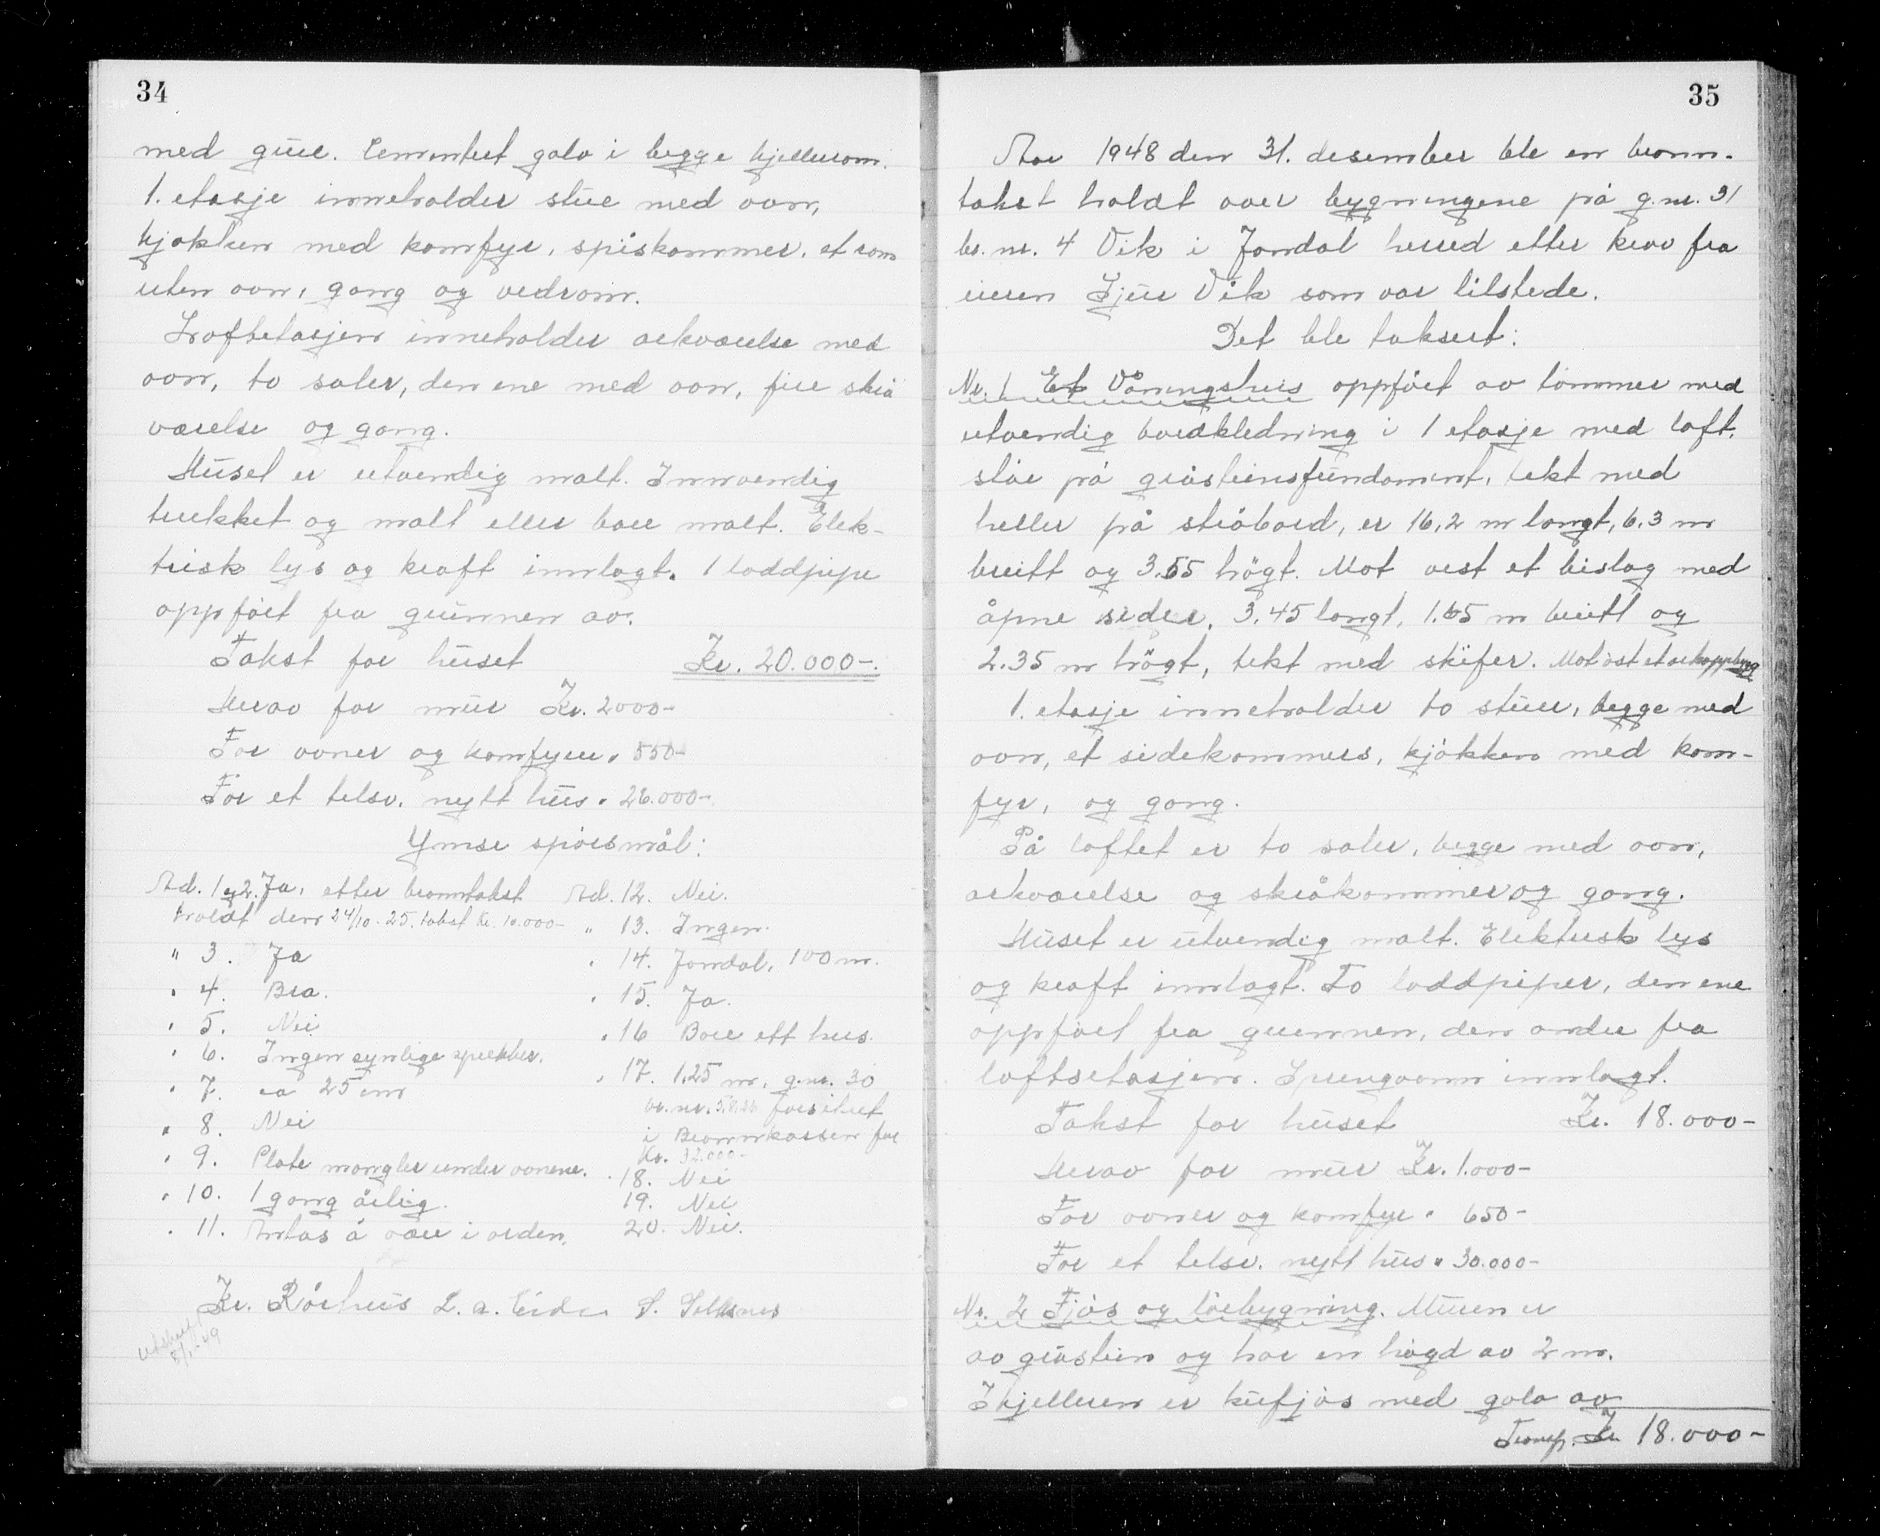 34
med grue. Cementert golv i begge kjellerrom.
1. etasje inneholder stue med ovn,
kjøkken med komfyr, spiskammer, et rom
uten ovn, gang og vedrom.
Loftetasjen inneholder arkværelse med
ovn, to saler, den ene med ovn, fire skrå
værelse og gang.
Huset er utvendig malt. Innvendig
trekket og malt eller bare malt. Elek-
trisk lys og kraft innlagt. 1 loddpipe
oppført fra grunnen av.
Takst for huset Kr. 20.000-.
Herav for mur Kr. 2000-
For ovner og komfyrer " 550-
For et tilsv. nytt hus " 26.000-
Ymse spørsmål:
Ad. 1 og 2. Ja, etter branntakst
holdt den 24/10. 25. takst kr. 10.000-
" 3. Ja
" 4. Bra.
" 5. Nei
" 6. Ingen synlige sprekker.
" 7. ca 25 cm
" 8. Nei
" 9. Plate mangler under ovnene.
" 10. 1 gang årlig.
" 11. Antas å være i orden.
Ad. 12. Nei.
" 13. Ingen.
" 14. Jondal, 100 m.
" 15. Ja.
" 16 Bare ett hus.
" 17. 1,25 m, g.nr. 30
br.nr. 5.8.26 forsikret
i Brannkassen for
Kr. 32.000-
" 18. Nei
19. Nei
20. Nei.
Kr. Rørhus L. A. Eide S. Selsnes
Utskrevet
8/1-49
35
Aar 1948 den 31. desember ble en brann-
takst holdt over bygningene på g.nr. 31
br. nr. 4 Vik i Jondal herred etter krav fra
eieren Sjur Vik som var tilstede.
Det ble taksert:
Nr. 1 Et Våningshus oppført av tømmer med
utvendig bordkledning i 1 etasje med loft,
står på gråsteinsfundament, tekt med
heller på stråbord, er 16,2 m langt, 6,3 m
breitt og 3.55 høgt. Mot vest et bislag med
åpne sider, 3.45 langt, 1.65 m breitt og
2.35 m høgt, tekt med skifer. Mot øst et arkoppbygg
1. etasje inneholder to stuer, begge med
ovn, et sidekammers, kjøkken med kom-
fyr, og gang.
På loftet er to saler, begge med ovn,
arkværelse og skråkommers og gang.
Huset er utvendig malt. Elektrisk lys
og kraft innlagt. To loddpiper, den ene
oppført fra grunnen, den andre fra
loftsetasjen. Springvann innlagt.
Takst for huset Kr. 18.000-
Herav for mur Kr. 1.000-
For ovner og komfyr " 650-
For et tilsv. nytt hus " 30.000-
Nr. 2 Fjøs og løebygning. Muren er
av gråstein og har en høgd av 2 m.
I kjelleren er kufjøs med golv av
Transp. Kr 18.000-